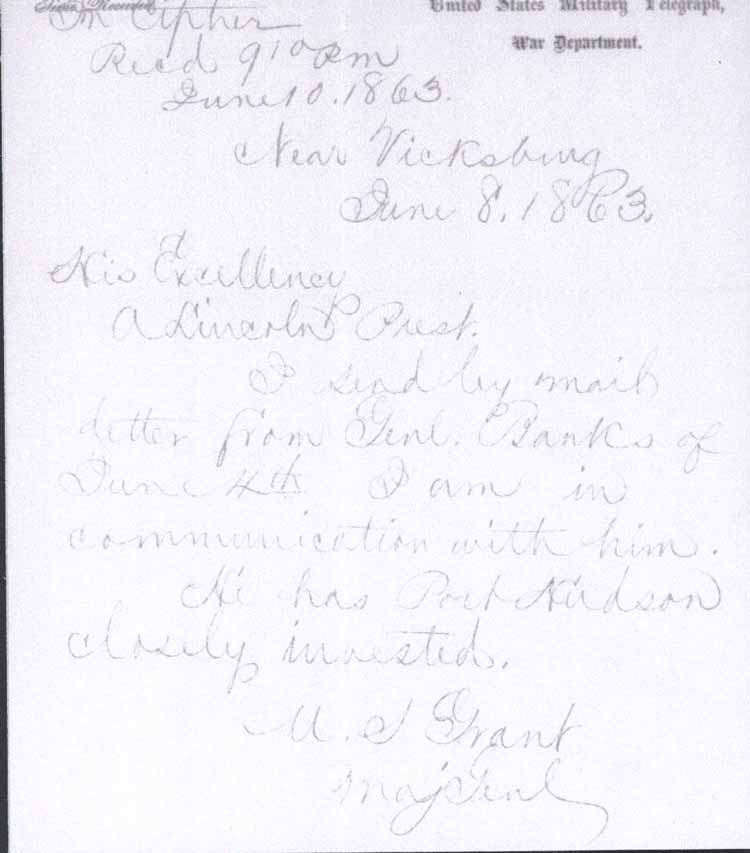 Time Received
United States Military Telegraph,
War Department.
In Cipher
Recd 9 10 PM
June 10. 1863.
Near Vicksburg
June 8. 1863.
His Excellency
A Lincoln Prest.
I send by mail
letter from Genl. Banks of
June 4th I am in
communication with him.
He has Port Hudson
closely invested.
U. S Grant
Maj Genl